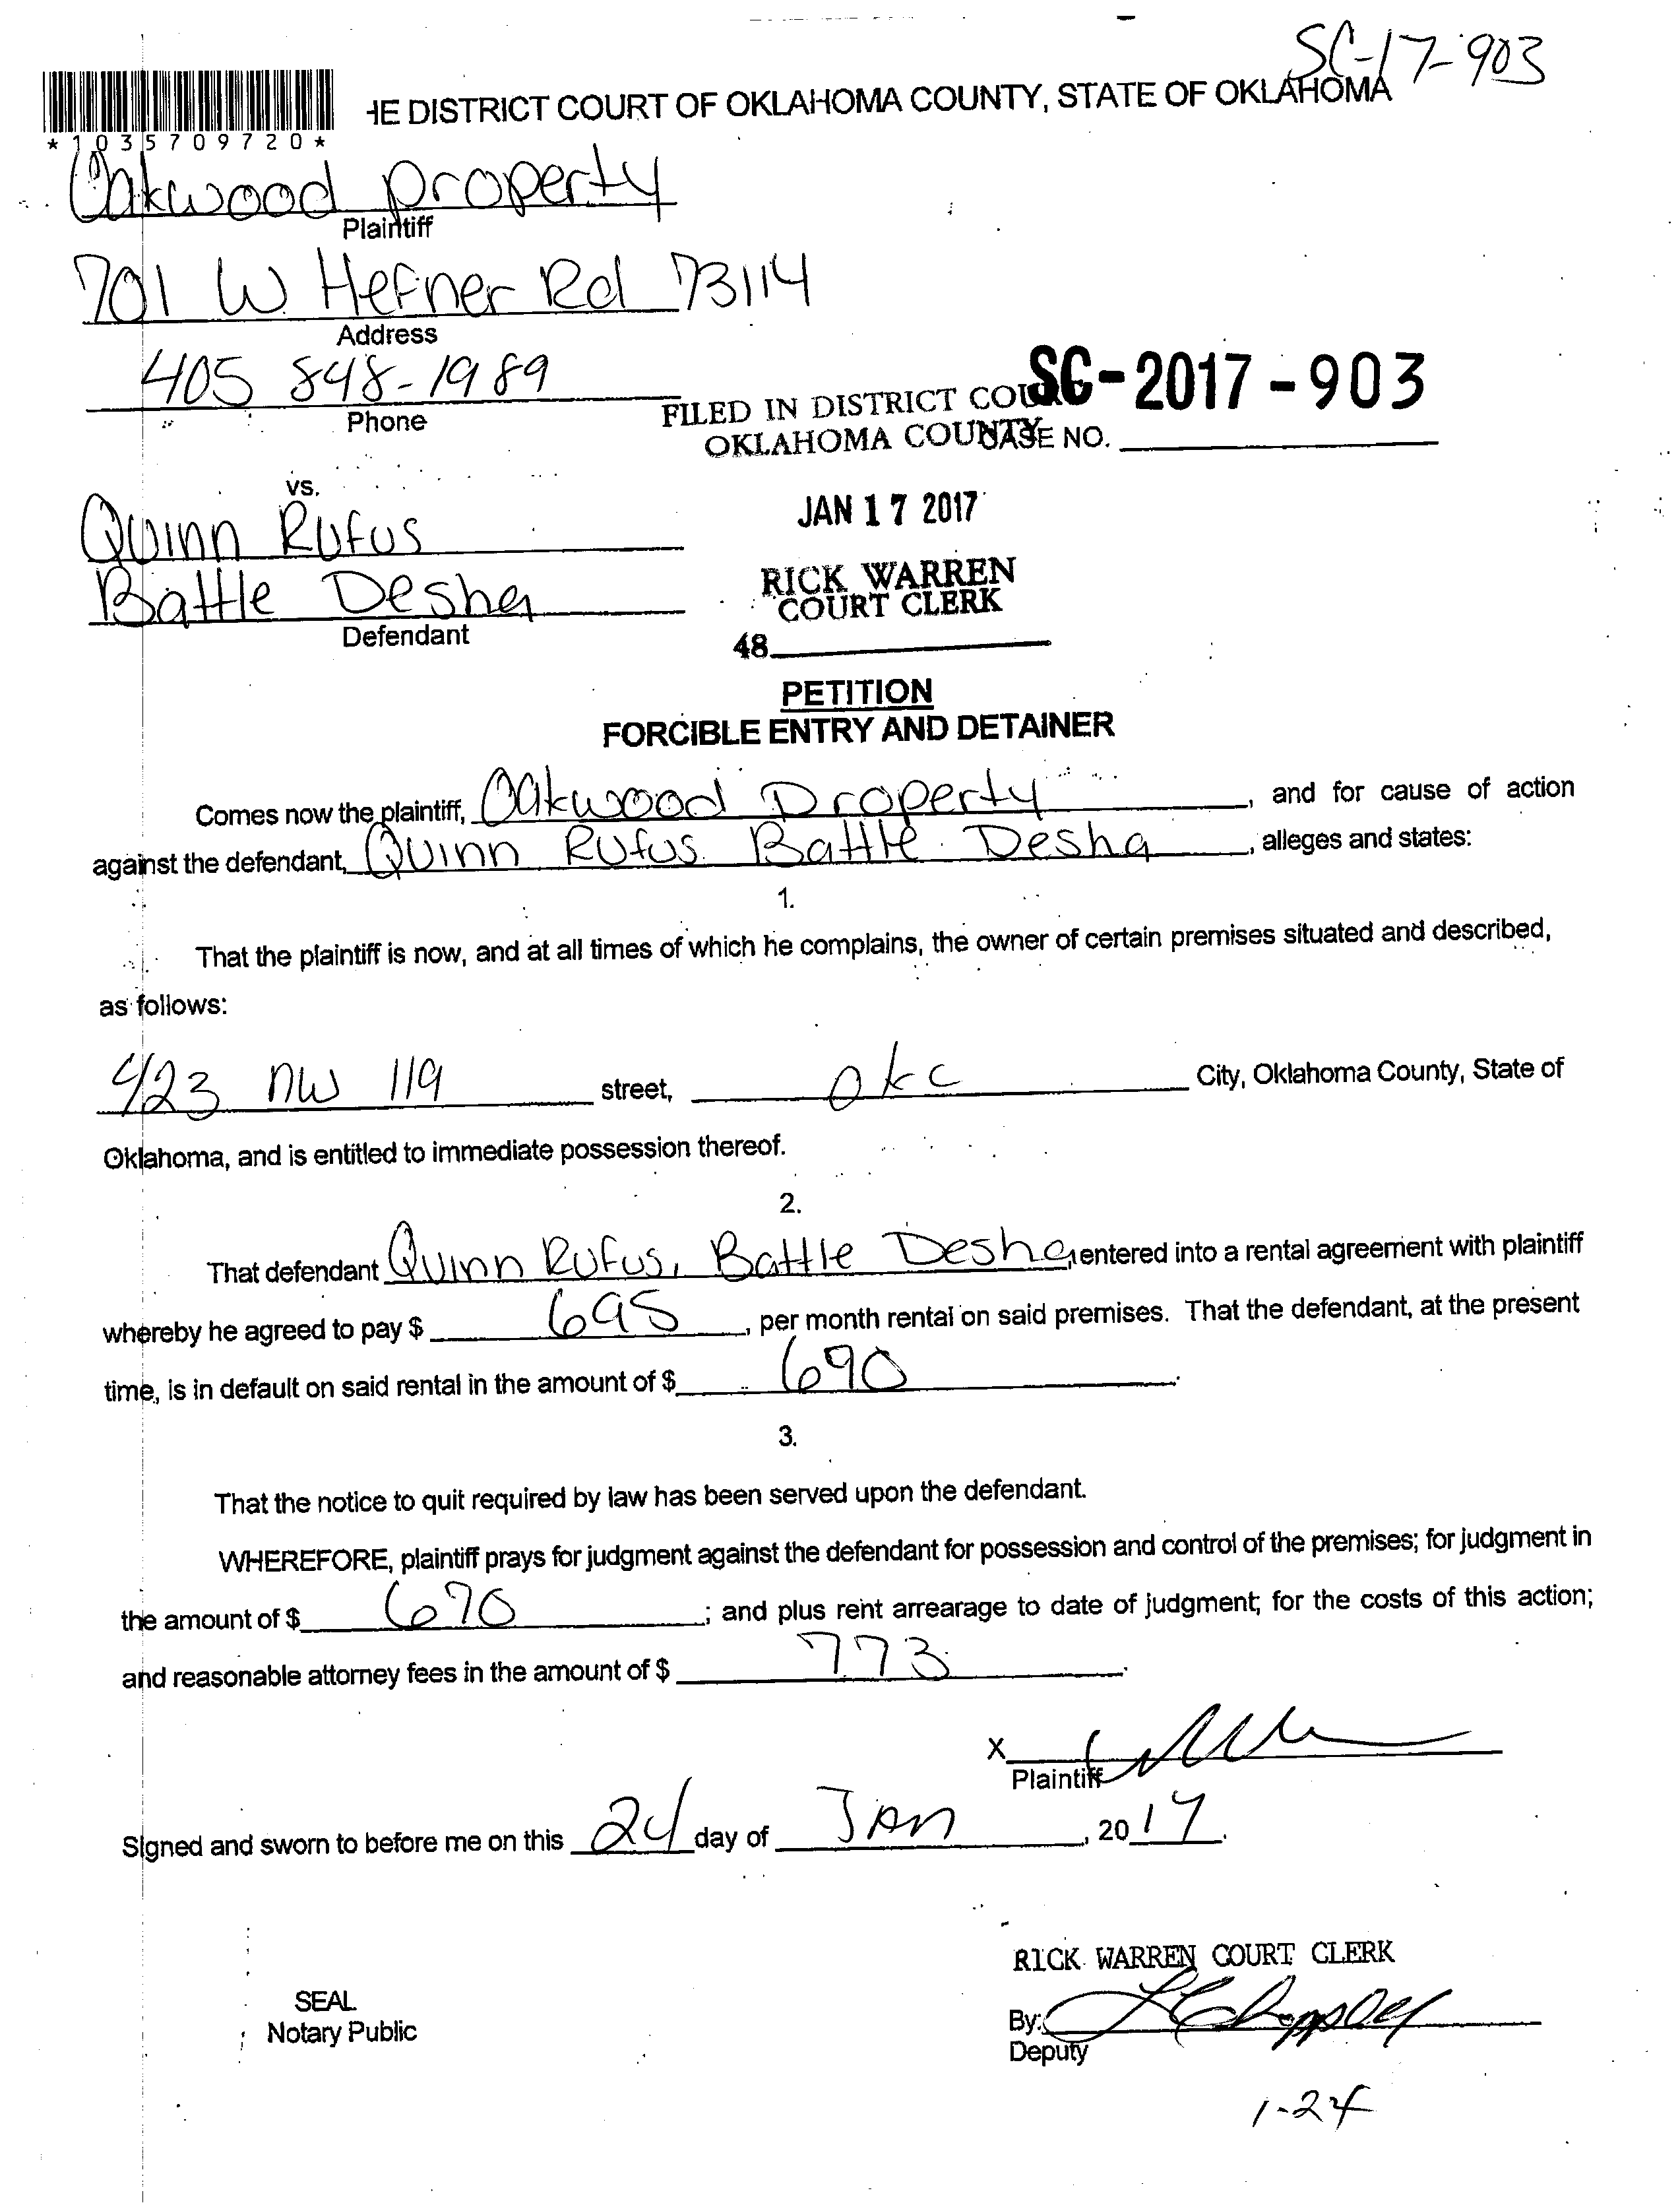 SC-17-903
HE DISTRICT COURT OF OKLAHOMA COUNTY, STATE OF OKLAHOMA
*1035709720*
Oakwood property
Plaintiff
701 W. Hefner Rd 73114
Address
405 848-1989
Phone
SC-2017-903
FILED IN DISTRICT COURT
OKLAHOMA COUNTY
CASE NO.
vs.
JAN 17 2017
Quinn Rufus
Battle Desha
Defendant
RICK WARREN
COURT CLERK
48
PETITION
FORCIBLE ENTRY AND DETAINER
Comes now the plaintiff, Oakwood Property, and for cause of action
against the defendant, Quinn Rufus Battle Desha, alleges and states:
1.
That the plaintiff is now, and at all times of which he complains, the owner of certain premises situated and described,
as follows:
423 NW 119 street, OKC City, Oklahoma County, State of
Oklahoma, and is entitled to immediate possession thereof.
2.
That defendant Quinn Rufus, Battle Desha, entered into a rental agreement with plaintiff
whereby he agreed to pay $ 695, per month rental on said premises. That the defendant, at the present
time, is in default on said rental in the amount of $ 690.
3.
That the notice to quit required by law has been served upon the defendant.
WHEREFORE, plaintiff prays for judgment against the defendant for possession and control of the premises; for judgment in
the amount of $ 690; and plus rent arrearage to date of judgment; for the costs of this action;
and reasonable attorney fees in the amount of $ 773.
X
Plaintiff
Signed and sworn to before me on this 24 day of JAN, 2017.
RICK WARREN COURT CLERK
SEAL
Notary Public
By:
Deputy
1-24